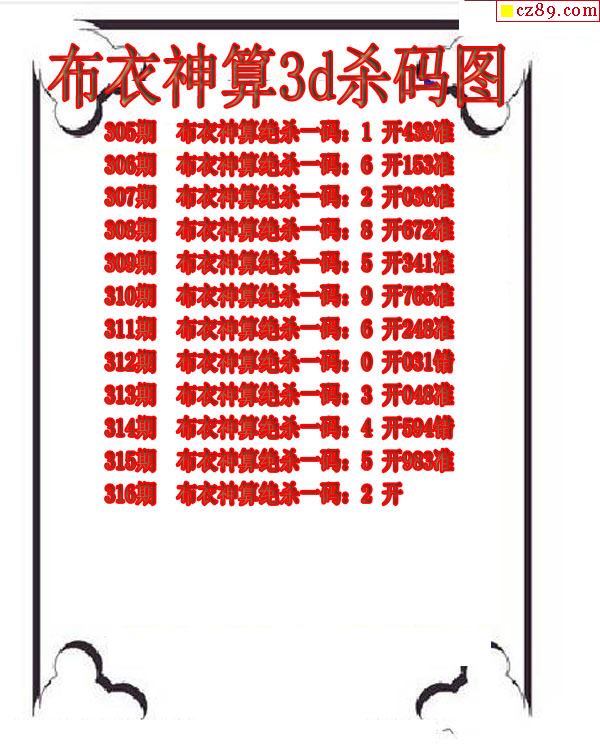 cz89.com
布衣神算3d杀码图
305期 布衣神算绝杀一码：1 开439准
306期 布衣神算绝杀一码：6 开153准
307期 布衣神算绝杀一码：2 开036准
308期 布衣神算绝杀一码：8 开672准
309期 布衣神算绝杀一码：5 开341准
310期 布衣神算绝杀一码：9 开765准
311期 布衣神算绝杀一码：6 开248准
312期 布衣神算绝杀一码：0 开031错
313期 布衣神算绝杀一码：3 开048准
314期 布衣神算绝杀一码：4 开594错
315期 布衣神算绝杀一码：5 开983准
316期 布衣神算绝杀一码：2 开